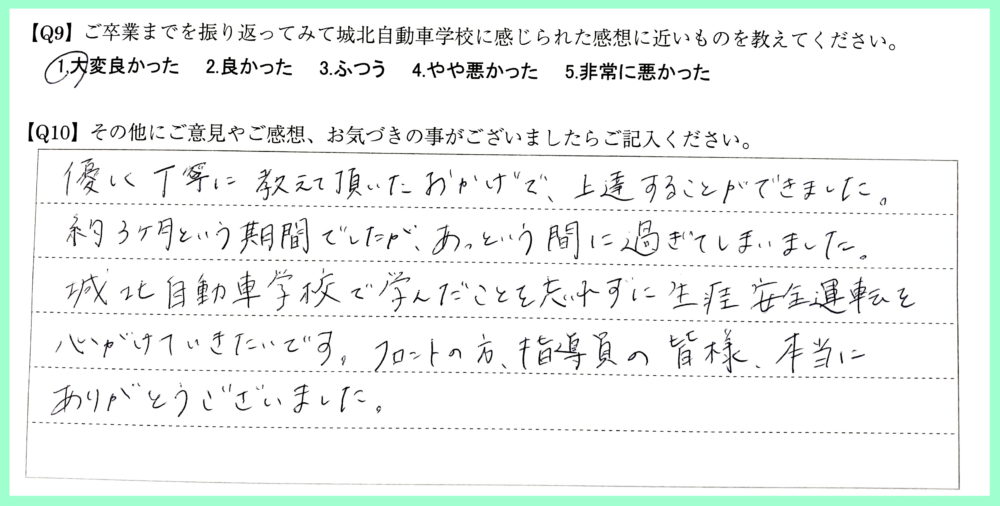 【Q9】ご卒業までを振り返ってみて城北自動車学校に感じられた感想に近いものを教えてください。
1.大変良かった 2.良かった 3.ふつう 4.やや悪かった 5.非常に悪かった
【Q10】その他にご意見やご感想、お気づきの事がございましたらご記入ください。
優しく丁寧に教えて頂いたおかげで、上達することができました。
約3ヶ月という期間でしたが、あっという間に過ぎてしまいました。
城北自動車学校で学んだことを忘れずに生涯安全運転を
心がけていきたいです。フロントの方、指導員の皆様、本当に
ありがとうございました。